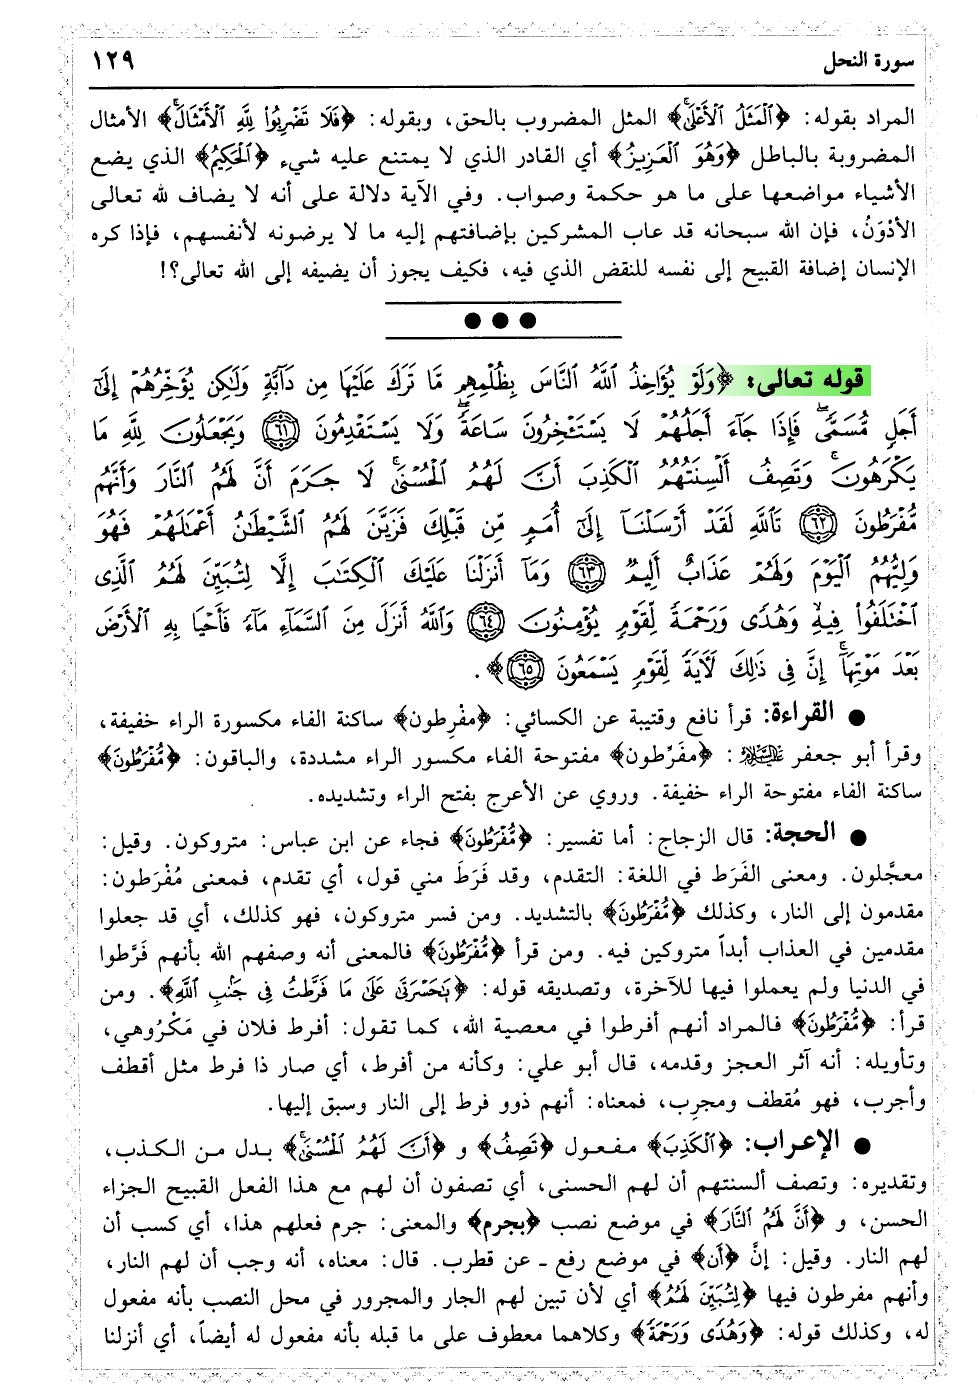 سورة النحل ١٢٩
المراد بقوله: ﴿ٱلْمَثَلُ ٱلْأَعْلَىٰ﴾ المثل المضروب بالحق، وبقوله: ﴿فَلَا تَضْرِبُوا۟ لِلَّهِ ٱلْأَمْثَالَ﴾ الأمثال
المضروبة بالباطل ﴿وَهُوَ ٱلْعَزِيزُ﴾ أي القادر الذي لا يمتنع عليه شيء ﴿ٱلْحَكِيمُ﴾ الذي يضع
الأشياء مواضعها على ما هو حكمة وصواب. وفي الآية دلالة على أنه لا يضاف لله تعالى
الأدْوَنُ، فإن الله سبحانه قد عاب المشركين بإضافتهم إليه ما لا يرضونه لأنفسهم، فإذا كره
الإنسان إضافة القبيح إلى نفسه للنقض الذي فيه، فكيف يجوز أن يضيفه إلى الله تعالى؟!
قوله تعالى: ﴿وَلَوْ يُؤَاخِذُ ٱللَّهُ ٱلنَّاسَ بِظُلْمِهِم مَّا تَرَكَ عَلَيْهَا مِن دَآبَّةٍ وَلَٰكِن يُؤَخِّرُهُمْ إِلَىٰٓ
أَجَلٍ مُّسَمًّى ۖ فَإِذَا جَآءَ أَجَلُهُمْ لَا يَسْتَـْٔخِرُونَ سَاعَةً ۖ وَلَا يَسْتَقْدِمُونَ ٦١ وَيَجْعَلُونَ لِلَّهِ مَا
يَكْرَهُونَ ۚ وَتَصِفُ أَلْسِنَتُهُمُ ٱلْكَذِبَ أَنَّ لَهُمُ ٱلْحُسْنَىٰ ۖ لَا جَرَمَ أَنَّ لَهُمُ ٱلنَّارَ وَأَنَّهُم
مُّفْرَطُونَ ٦٢ تَٱللَّهِ لَقَدْ أَرْسَلْنَآ إِلَىٰٓ أُمَمٍ مِّن قَبْلِكَ فَزَيَّنَ لَهُمُ ٱلشَّيْطَٰنُ أَعْمَٰلَهُمْ فَهُوَ
وَلِيُّهُمُ ٱلْيَوْمَ وَلَهُمْ عَذَابٌ أَلِيمٌ ٦٣ وَمَآ أَنزَلْنَا عَلَيْكَ ٱلْكِتَٰبَ إِلَّا لِتُبَيِّنَ لَهُمُ ٱلَّذِى
ٱخْتَلَفُوا۟ فِيهِ ۙ وَهُدًى وَرَحْمَةً لِّقَوْمٍ يُؤْمِنُونَ ٦٤ وَٱللَّهُ أَنزَلَ مِنَ ٱلسَّمَآءِ مَآءً فَأَحْيَا بِهِ ٱلْأَرْضَ
بَعْدَ مَوْتِهَآ ۚ إِنَّ فِى ذَٰلِكَ لَءَايَةً لِّقَوْمٍ يَسْمَعُونَ ٦٥﴾.
● القراءة: قرأ نافع وقتيبة عن الكسائي: ﴿مفْرِطون﴾ ساكنة الفاء مكسورة الراء خفيفة،
وقرأ أبو جعفر عليه السلام: ﴿مفَرِّطون﴾ مفتوحة الفاء مكسور الراء مشددة، والباقون: ﴿مُّفْرَطُونَ﴾
ساكنة الفاء مفتوحة الراء خفيفة. وروي عن الأعرج بفتح الراء وتشديده.
● الحجة: قال الزجاج: أما تفسير: ﴿مُّفْرَطُونَ﴾ فجاء عن ابن عباس: متروكون. وقيل:
معجَّلون. ومعنى الفَرَط في اللغة: التقدم، وقد فَرَطَ مني قول، أي تقدم، فمعنى مُفْرَطون:
مقدمون إلى النار، وكذلك ﴿مُّفْرَطُونَ﴾ بالتشديد. ومن فسر متروكون، فهو كذلك، أي قد جعلوا
مقدمين في العذاب أبداً متروكين فيه. ومن قرأ ﴿مُّفْرَطُونَ﴾ فالمعنى أنه وصفهم الله بأنهم فَرَّطوا
في الدنيا ولم يعملوا فيها للآخرة، وتصديقه قوله: ﴿بَٰحَسْرَتَىٰ عَلَىٰ مَا فَرَّطتُ فِى جَنۢبِ ٱللَّهِ﴾. ومن
قرأ: ﴿مُّفْرَطُونَ﴾ فالمراد أنهم أفرطوا في معصية الله، كما تقول: أفرط فلان في مَكْرُوهي،
وتأويله: أنه آثر العجز وقدمه، قال أبو علي: وكأنه من أفرط، أي صار ذا فرط مثل أقطف
وأجرب، فهو مُقطف ومجرِب، فمعناه: أنهم ذوو فرط إلى النار وسبق إليها.
● الإعراب: ﴿ٱلْكَذِبَ﴾ مفعول ﴿تَصِفُ﴾ و ﴿أَنَّ لَهُمُ ٱلْحُسْنَىٰ﴾ بدل من الكذب،
وتقديره: وتصف ألسنتهم أن لهم الحسنى، أي تصفون أن لهم مع هذا الفعل القبيح الجزاء
الحسن، و ﴿أَنَّ لَهُمُ ٱلنَّارَ﴾ في موضع نصب ﴿بجرم﴾ والمعنى: جرم فعلهم هذا، أي كسب أن
لهم النار. وقيل: إنَّ ﴿أن﴾ في موضع رفع - عن قطرب. قال: معناه، أنه وجب أن لهم النار،
وأنهم مفرطون فيها ﴿لِتُبَيِّنَ لَهُمُ﴾ أي لأن تبين لهم الجار والمجرور في محل النصب بأنه مفعول
له، وكذلك قوله: ﴿وَهُدًى وَرَحْمَةً﴾ وكلاهما معطوف على ما قبله بأنه مفعول له أيضاً، أي أنزلنا